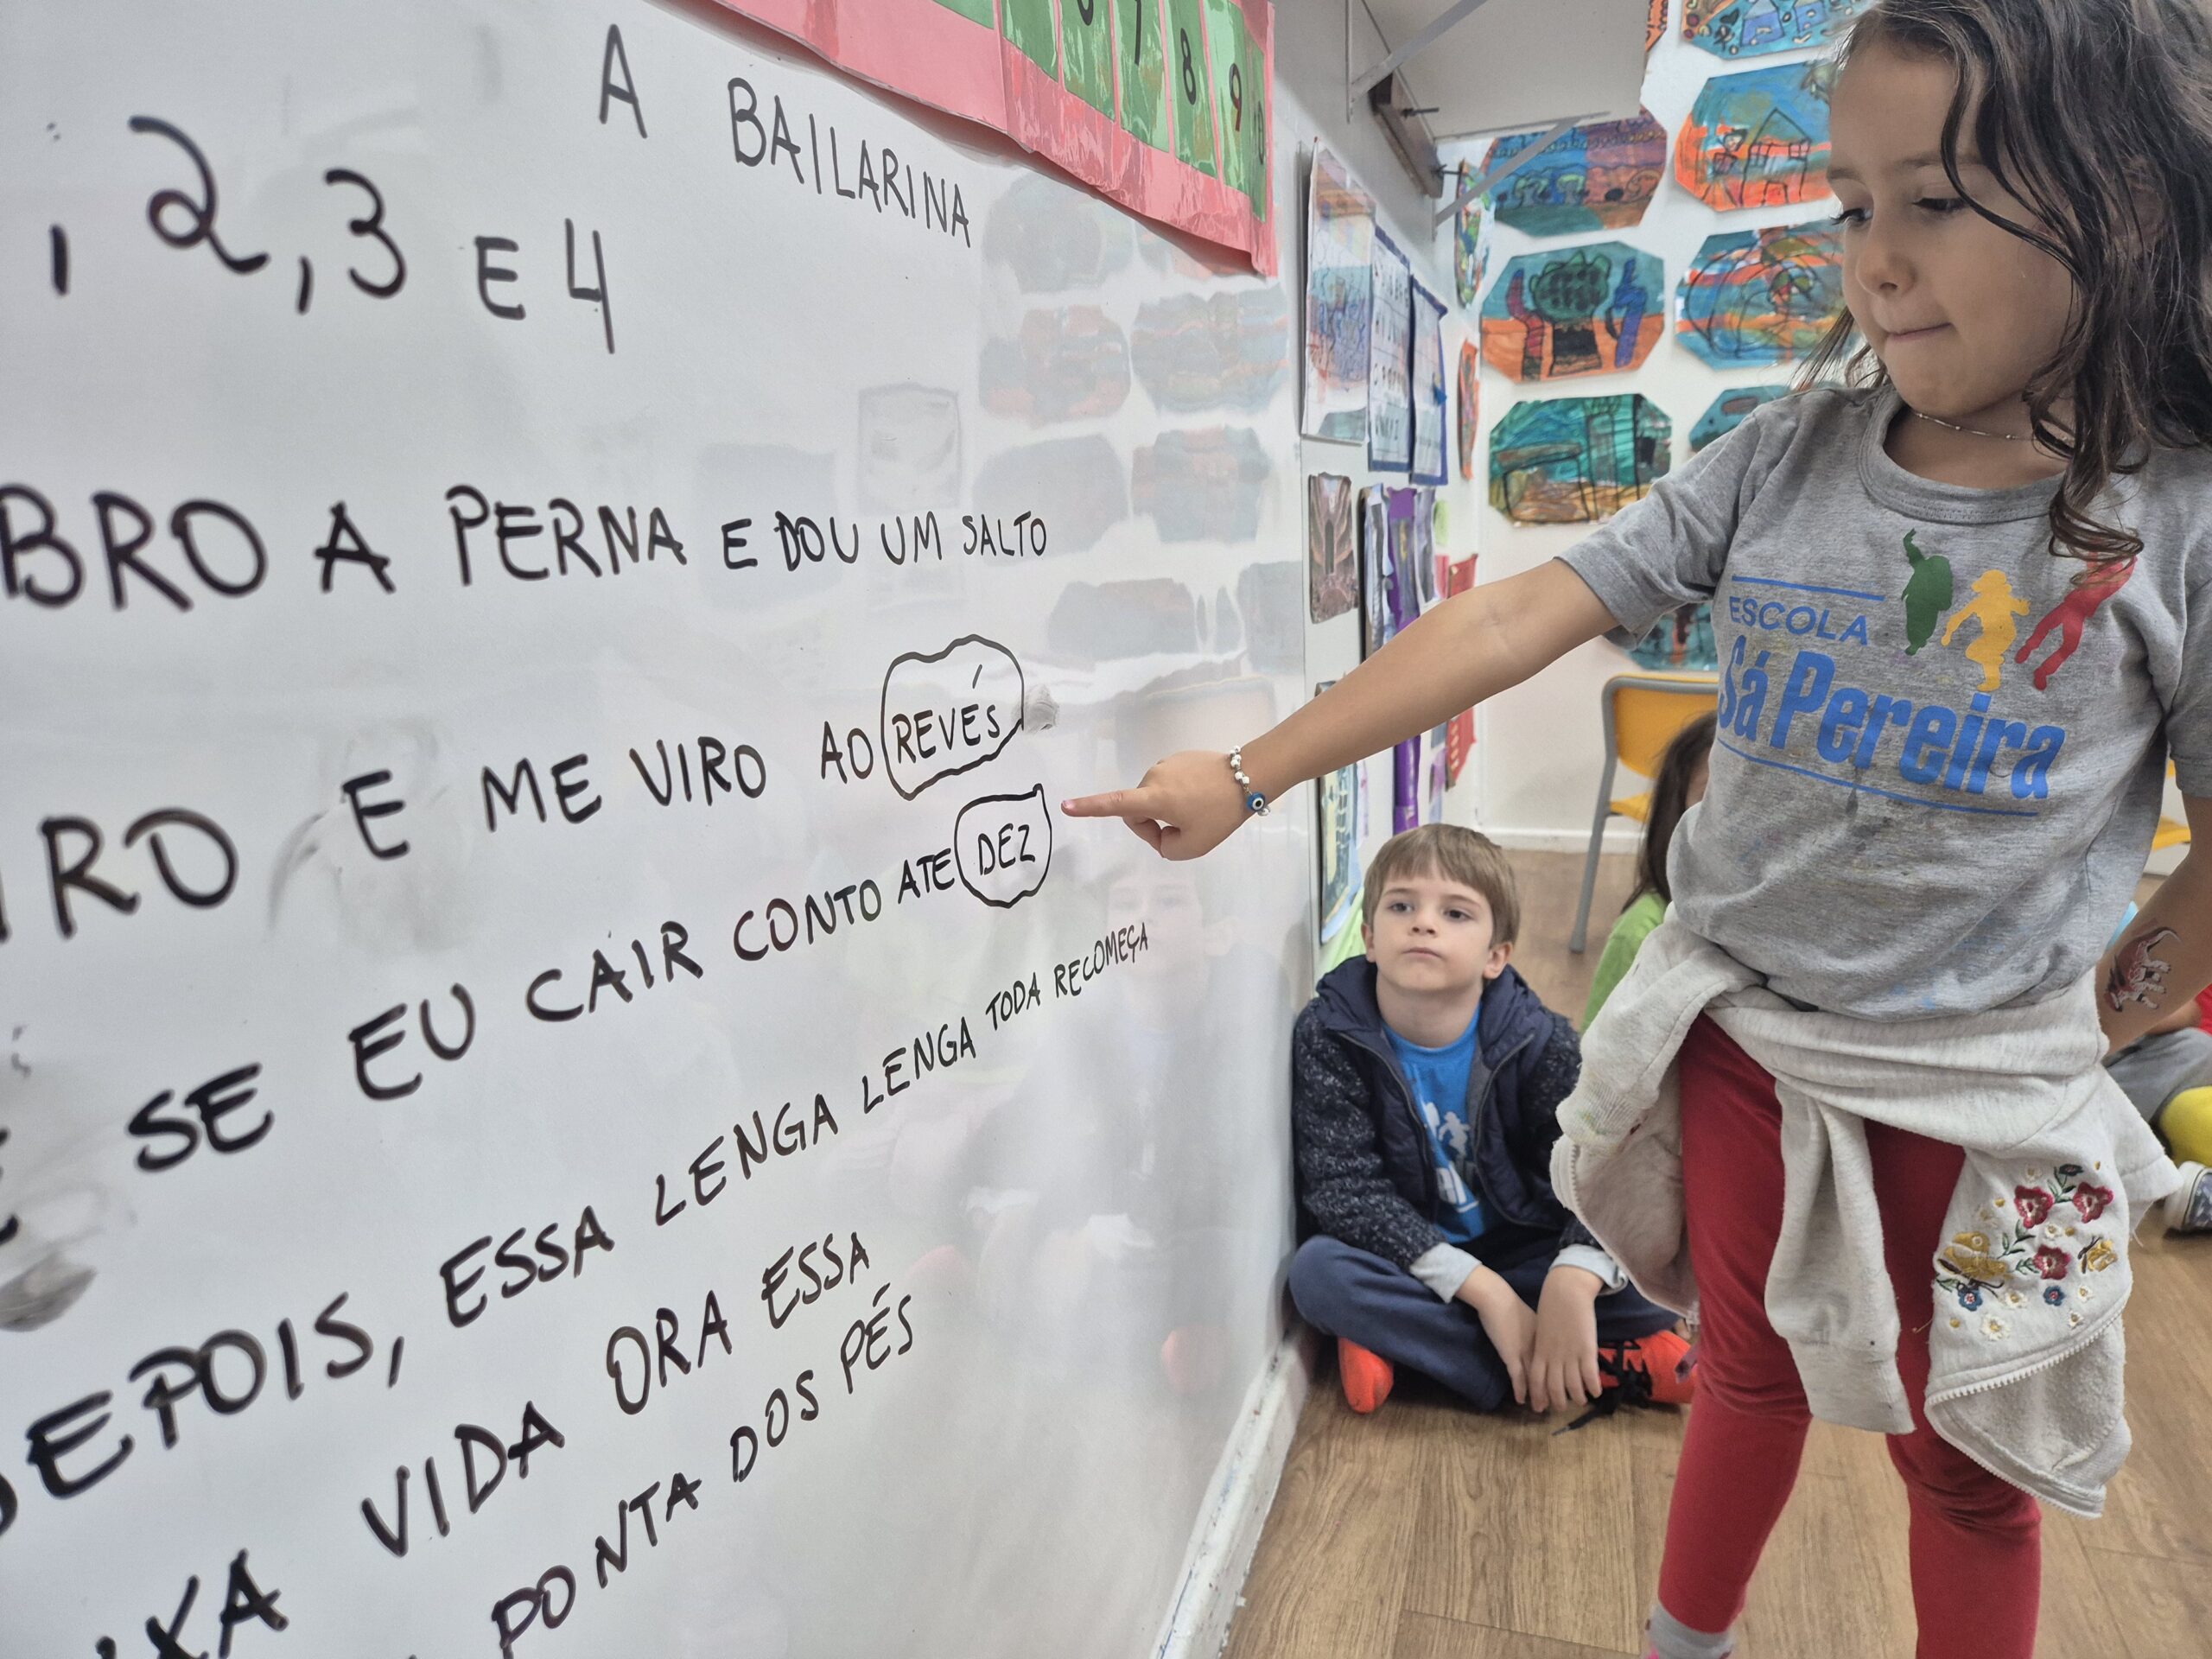 A BAILARINA
, 2, 3 E 4
BRO A PERNA E DOU UM SALTO
IRO E ME VIRO AO REVÉS
SE EU CAIR CONTO ATE DEZ
DEPOIS, ESSA LENGA LENGA TODA RECOMEÇA
VIDA ORA ESSA
PONTA DOS PÉS
7 8 9
ESCOLA
Sá Pereira